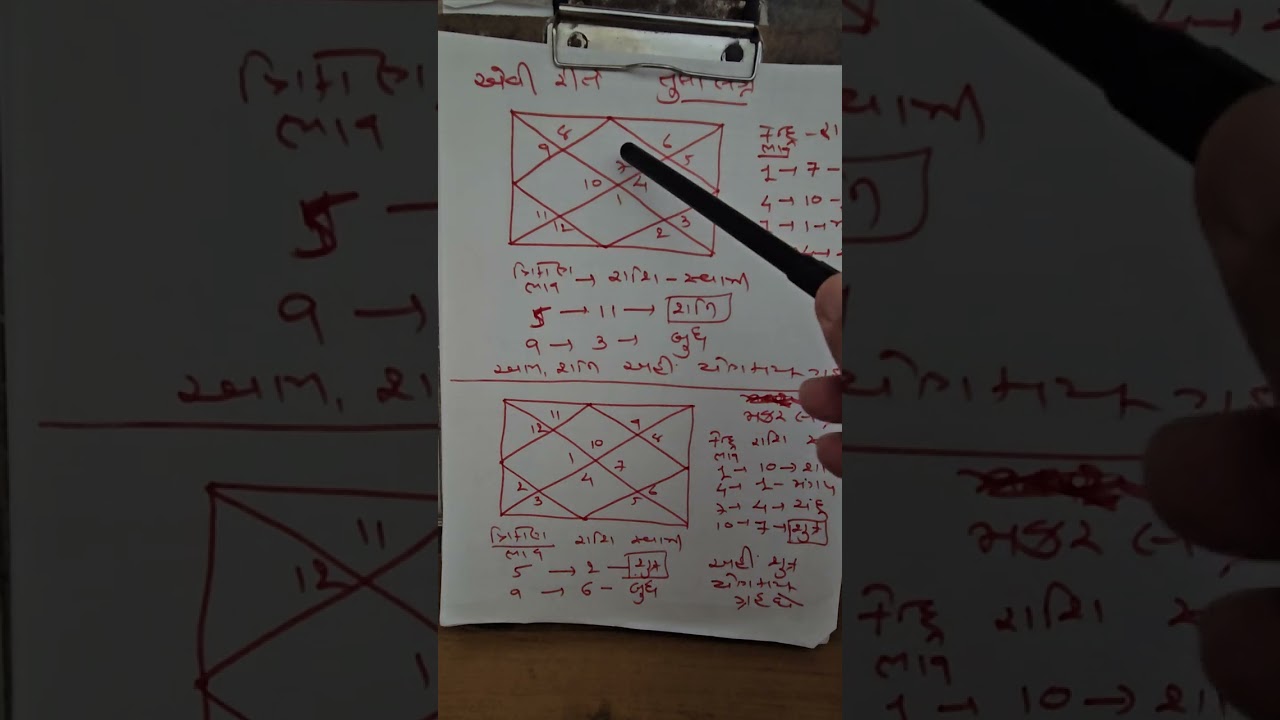 એવી રીતે તુલા લગ્ન
8 6
9 5
7
10 4
1
11 3
12 2
કેન્દ્ર - રા
ભાવ
1 → 7 -
4 → 10 -
7 → 1 →
ત્રિકોણ → રાશિ - સ્વામી
ભાવ
5 → 11 → શનિ
9 → 3 → બુધ
આમ, શનિ અહીં યોગકારક
11 9
12 10 8
1 7
4
2 6
3 5
મકર લ
કેન્દ્ર રાશિ
ભાવ
1 → 10 → શ
4 → 1 - મંગળ
7 → 4 → ચંદ્ર
10 → 7 → શુક્ર
ત્રિકોણ રાશિ સ્વામી
ભાવ
5 → 2 - શુક્ર
9 → 6 - બુધ
અહીં શુક્ર
યોગકારક